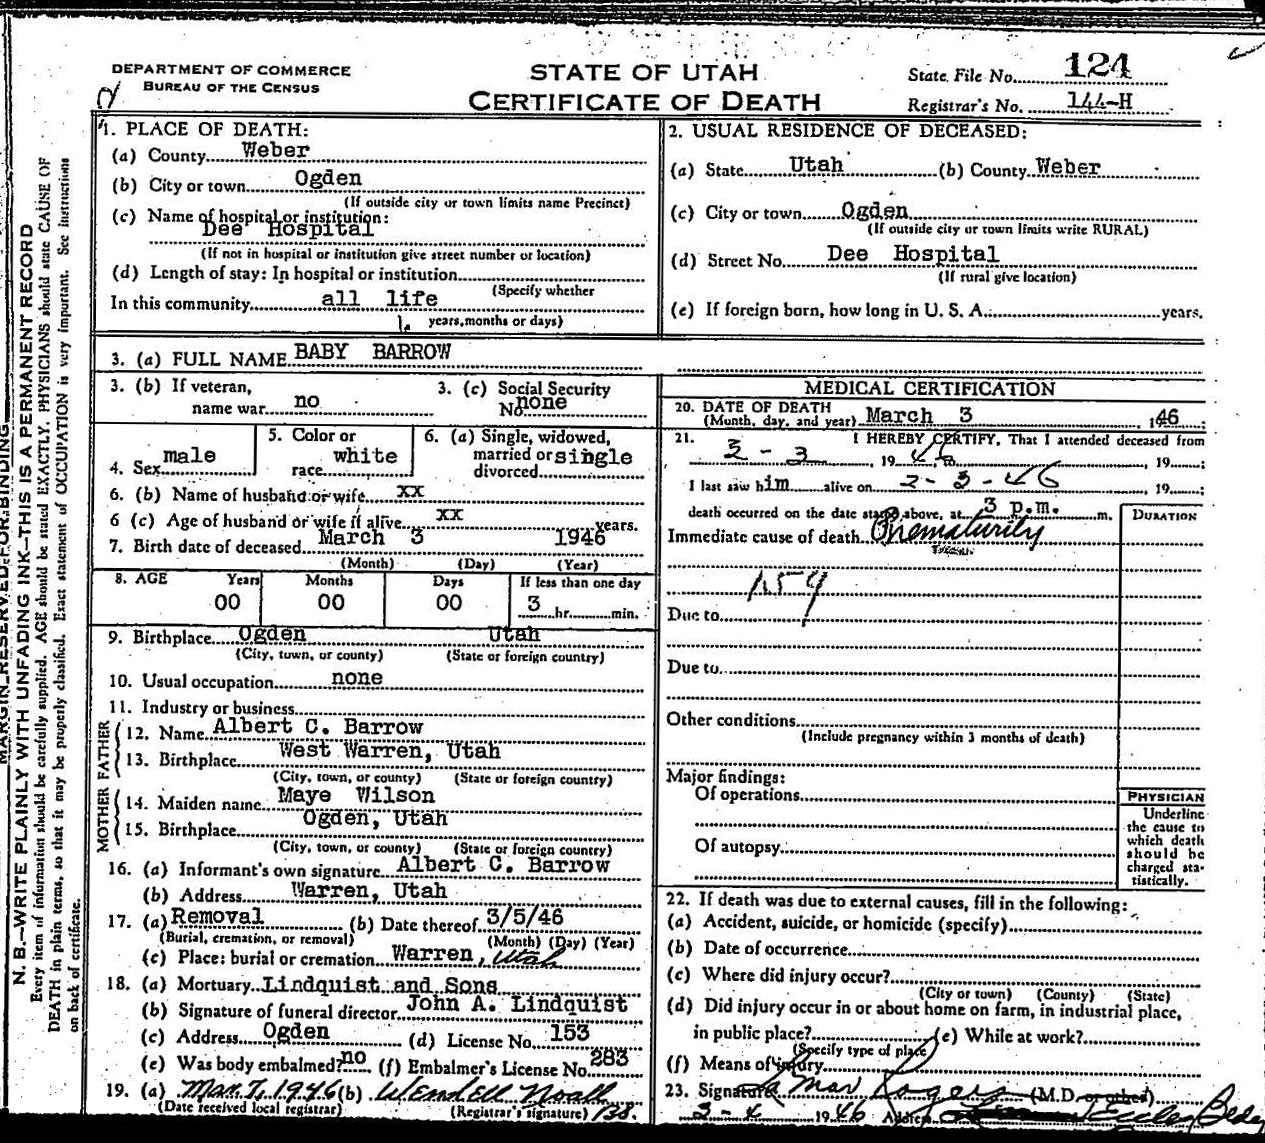 DEPARTMENT OF COMMERCE
BUREAU OF THE CENSUS
STATE OF UTAH
CERTIFICATE OF DEATH
State File No. 124
Registrar's No. 144-H
MARGIN RESERVED FOR BINDING
N. B.—WRITE PLAINLY WITH UNFADING INK—THIS IS A PERMANENT RECORD
Every item of information should be carefully supplied. AGE should be stated EXACTLY. PHYSICIANS should state CAUSE OF
DEATH in plain terms, so that it may be properly classified. Exact statement of OCCUPATION is very important. See instructions
on back of certificate.
1. PLACE OF DEATH:
(a) County Weber
(b) City or town Ogden
(If outside city or town limits name Precinct)
(c) Name of hospital or institution:
Dee Hospital
(If not in hospital or institution give street number or location)
(d) Length of stay: In hospital or institution
(Specify whether
In this community all life
years, months or days)
2. USUAL RESIDENCE OF DECEASED:
(a) State Utah (b) County Weber
(c) City or town Ogden
(If outside city or town limits write RURAL)
(d) Street No. Dee Hospital
(If rural give location)
(e) If foreign born, how long in U. S. A. years.
3. (a) FULL NAME BABY BARROW
3. (b) If veteran,
name war no
3. (c) Social Security
No. none
4. Sex male
5. Color or
race white
6. (a) Single, widowed,
married or single
divorced
6. (b) Name of husband or wife xx
6 (c) Age of husband or wife if alive xx years.
7. Birth date of deceased March 3 1946
(Month) (Day) (Year)
8. AGE Years Months Days If less than one day
00 00 00 3 hr. min.
9. Birthplace Ogden Utah
(City, town, or county) (State or foreign country)
10. Usual occupation none
11. Industry or business
FATHER
12. Name Albert C. Barrow
13. Birthplace West Warren, Utah
(City, town, or county) (State or foreign country)
MOTHER
14. Maiden name Maye Wilson
15. Birthplace Ogden, Utah
(City, town, or county) (State or foreign country)
16. (a) Informant's own signature Albert C. Barrow
(b) Address Warren, Utah
17. (a) Removal (b) Date thereof 3/5/46
(Burial, cremation, or removal) (Month) (Day) (Year)
(c) Place: burial or cremation Warren, Utah
18. (a) Mortuary Lindquist and Sons
(b) Signature of funeral director John A. Lindquist
(c) Address Ogden (d) License No. 153
(e) Was body embalmed? no (f) Embalmer's License No. 283
19. (a) Mar. 7, 1946 (b) Wendell Noall
(Date received local registrar) (Registrar's signature) 138.
MEDICAL CERTIFICATION
20. DATE OF DEATH
(Month, day, and year) March 3, 1946
21. I HEREBY CERTIFY, That I attended deceased from
3-3, 1946, to , 19 ;
I last saw him alive on 3-3-46 19 ;
death occurred on the date stated above, at 3 p.m. m.
DURATION
Immediate cause of death Prematurity
159
Due to
Due to
Other conditions
(Include pregnancy within 3 months of death)
Major findings:
Of operations
Of autopsy
PHYSICIAN
Underline
the cause to
which death
should be
charged sta-
tistically.
22. If death was due to external causes, fill in the following:
(a) Accident, suicide, or homicide (specify)
(b) Date of occurrence
(c) Where did injury occur?
(City or town) (County) (State)
(d) Did injury occur in or about home on farm, in industrial place,
in public place? (e) While at work?
(Specify type of place)
(f) Means of injury
23. Signature Rogers (M.D. or other)
3-4 1946 Address